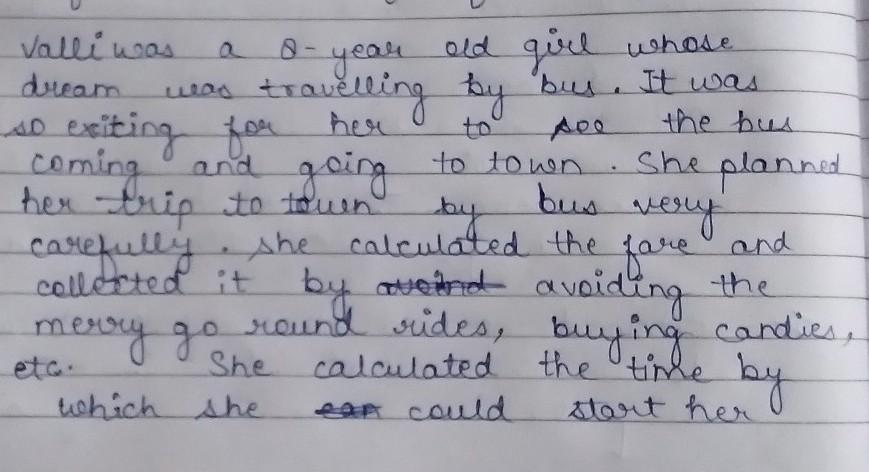 Valli was a 8-year old girl whose
dream was travelling by bus. It was
so exiting for her to see the bus
coming and going to town. She planned
her trip to town by bus very
carefully. she calculated the fare and
collected it by avoiding the
merry go round rides, buying candies,
etc. She calculated the time by
which she could start her